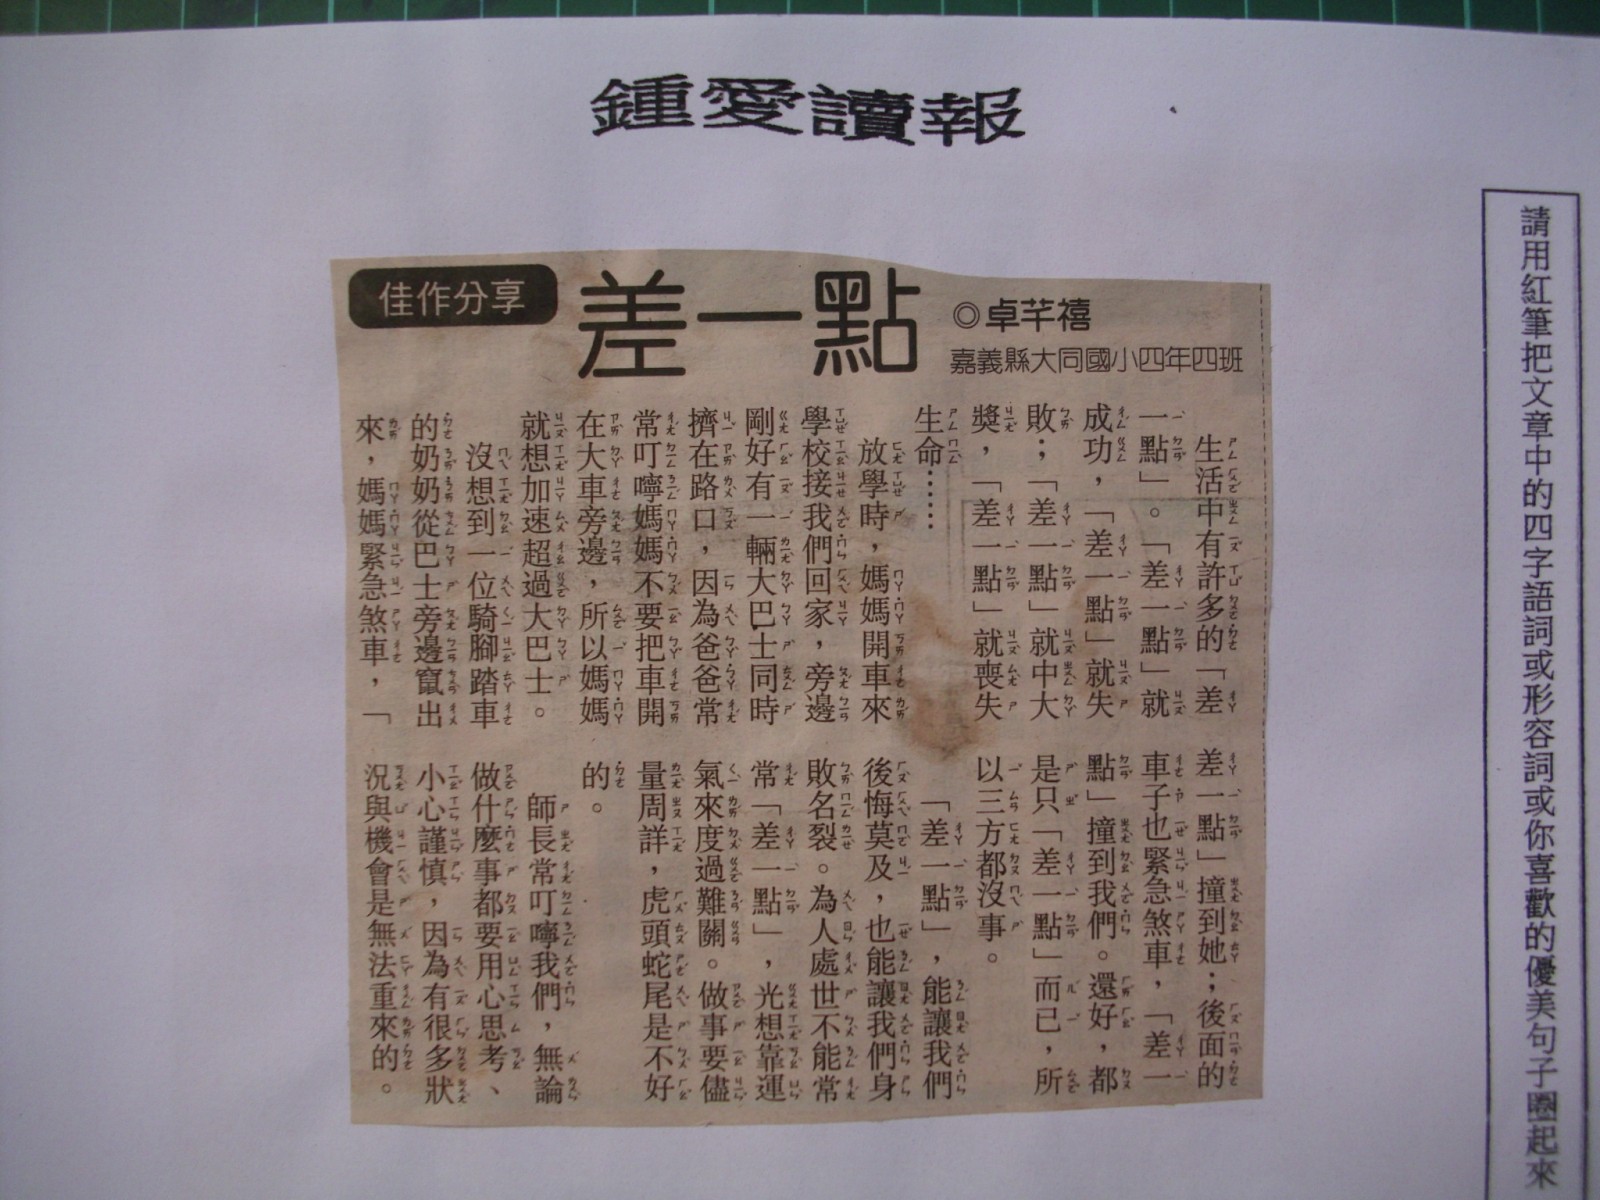 鍾愛讀報
請用紅筆把文章中的四字語詞或形容詞或你喜歡的優美句子圈起來
佳作分享
差一點
◎卓芊禧
嘉義縣大同國小四年四班
生活中有許多的「差
一點」。「差一點」就
成功，「差一點」就失
敗；「差一點」就中大
獎，「差一點」就喪失
生命⋯⋯
放學時，媽媽開車來
學校接我們回家，旁邊
剛好有一輛大巴士同時
擠在路口，因為爸爸常
常叮嚀媽媽不要把車開
在大車旁邊，所以媽媽
就想加速超過大巴士。
沒想到一位騎腳踏車
的奶奶從巴士旁邊竄出
來，媽媽緊急煞車，「
差一點」撞到她；後面的
車子也緊急煞車，「差一
點」撞到我們。還好，都
是只「差一點」而已，所
以三方都沒事。
「差一點」，能讓我們
後悔莫及，也能讓我們身
敗名裂。為人處世不能常
常「差一點」，光想靠運
氣來度過難關。做事要儘
量周詳，虎頭蛇尾是不好
的。
師長常叮嚀我們，無論
做什麼事都要用心思考、
小心謹慎，因為有很多狀
況與機會是無法重來的。